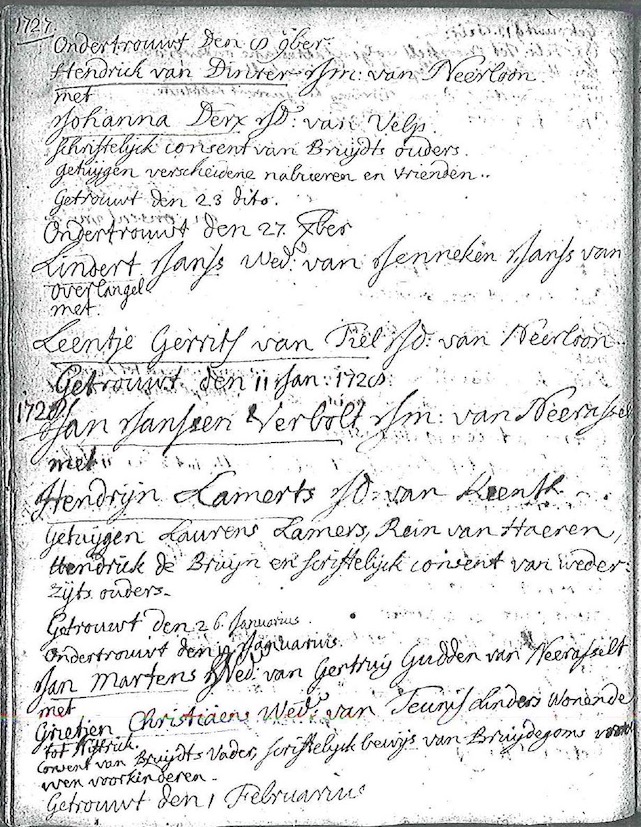 1727
Ondertrouwt den 8 9ber
Hendrick van Dinter JM: van Neerloon
met
Johanna Derx JD: van Velp
schriftelijck consent van Bruijdts ouders.
getuijgen verscheidene nabueren en vrienden..
Getrouwt den 23 dito.
Ondertrouwt den 27
Lindert Janss Wed: van Jenneken Janss van
overlangel
met
Leentje Gerrits van Tiel JD: van Neerloon
Getrouwt den 11 Jan: 1728
1728
Jan Janssen Verbolt JM: van Neerassel
met
Hendrijn Lamerts JD: van
Getuijgen Laurens Lamers, Rein van Haeren,
Hendrick de Bruijn en scriftelijck consent van weder:
zijts ouders.
Getrouwt den 26 Januarius
Ondertrouwt den Januarius
Jan Martens Wed: van Gertruij Gudden van Neerasselt
met
Grietjen Christiaens Wed: van Teunis Linders Wonende
tot
Consent van Bruijdts Vader, scriftelijck bewijs van Bruijdegoms
wen voorkinderen.
Getrouwt den 1 Februarius